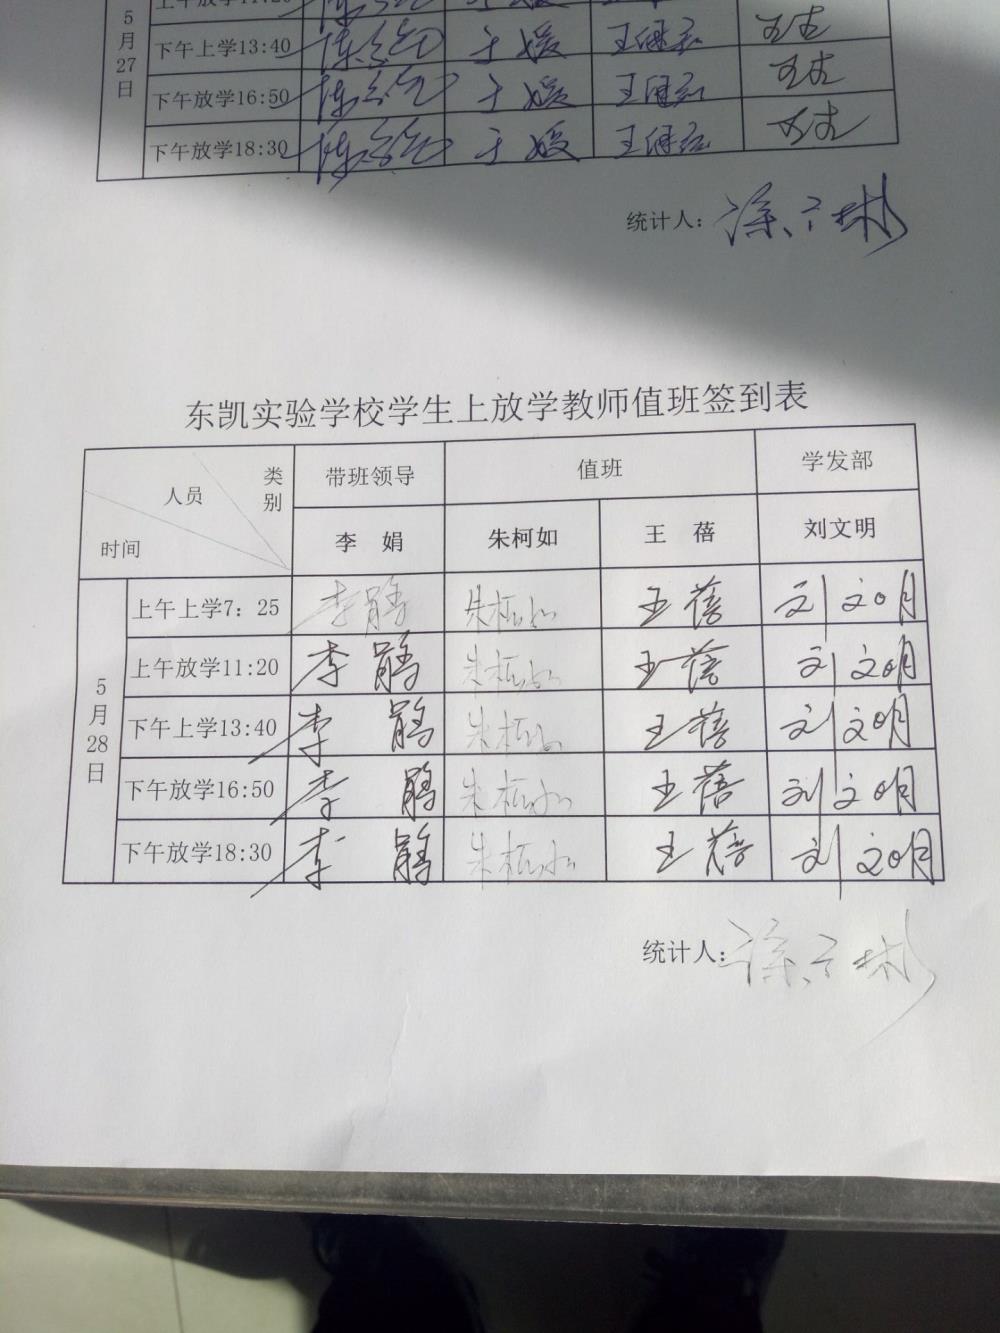 5月27日
下午上学13:40 于媛 王继红
下午放学16:50 于媛 王继红
下午放学18:30 于媛 王继红
统计人：
东凯实验学校学生上放学教师值班签到表
类别 人员 时间 带班领导 值班 学发部
李 娟 朱柯如 王 蓓 刘文明
5月28日
上午上学7：25 李鹃 朱柯如 王蓓 刘文明
上午放学11:20 李鹃 朱柯如 王蓓 刘文明
下午上学13:40 李鹃 朱柯如 王蓓 刘文明
下午放学16:50 李鹃 朱柯如 王蓓 刘文明
下午放学18:30 李鹃 朱柯如 王蓓 刘文明
统计人：